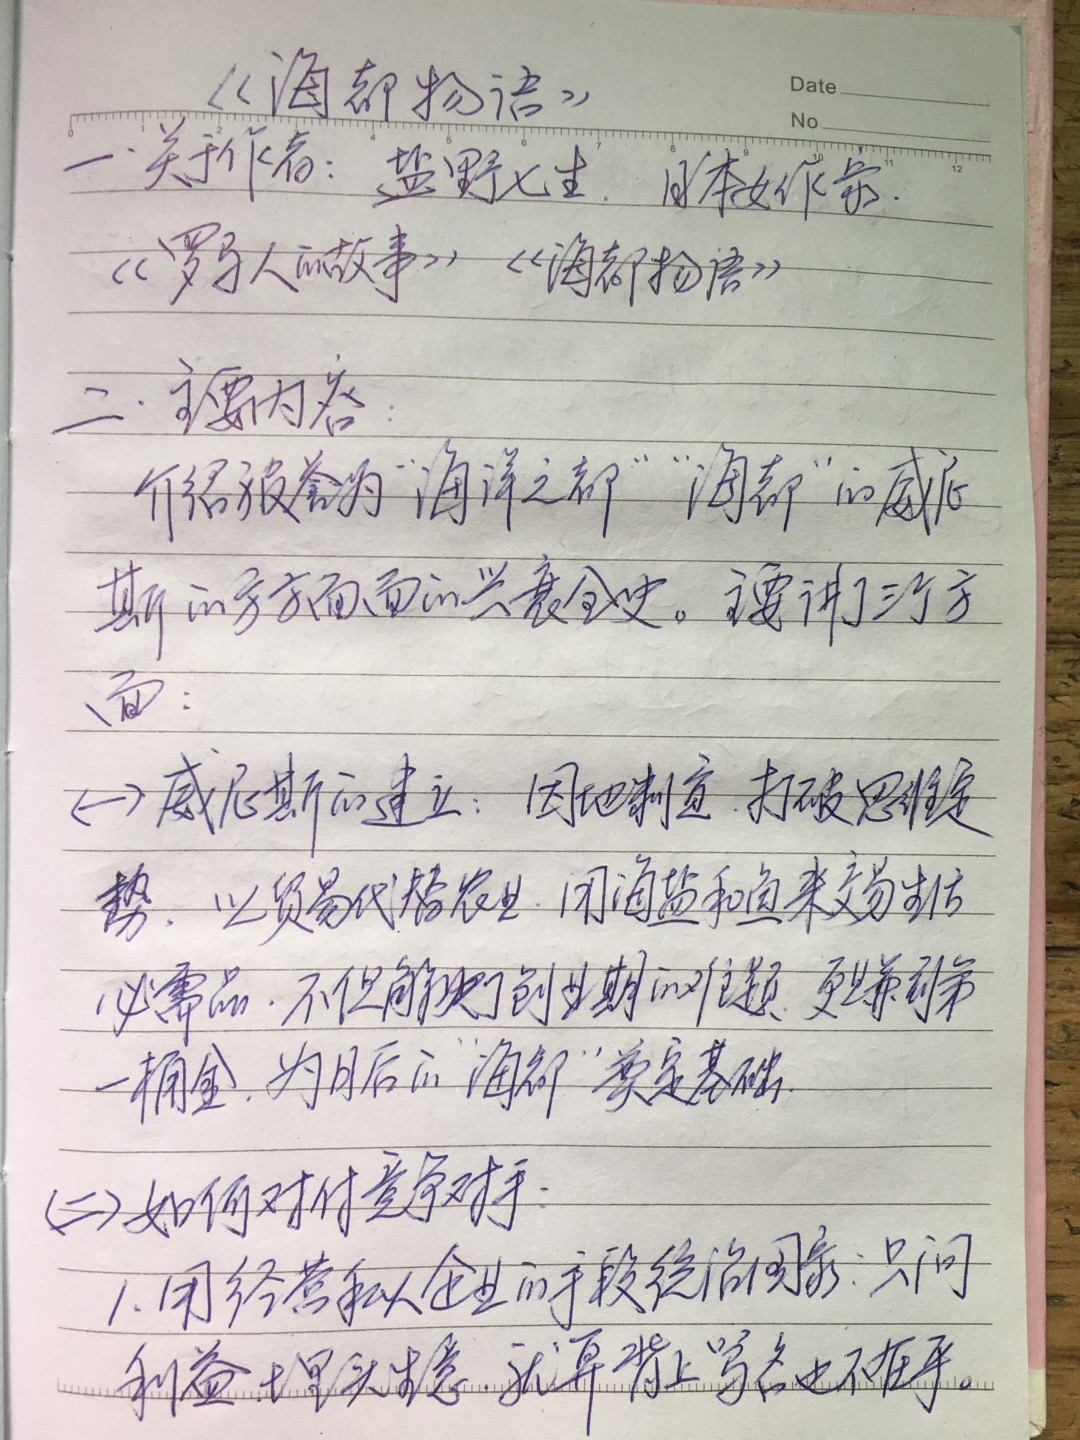 《海都物语》
Date
No
0 1 2 3 4 5 6 7 8 9 10 11 12
一.关于作者：盐野七生. 日本女作家.
《罗马人的故事》《海都物语》
二.主要内容：
介绍被誉为“海洋之都”“海都”的威尼
斯的方方面面的兴衰全史。主要讲了三个方
面：
(一)威尼斯的建立：因地制宜.打破思维定
势.以贸易代替农业.用海盐和鱼来交易生活
必需品.不但解决了创业期的难题.更赚到第
一桶金.为日后的“海都”奠定基础.
(二)如何对付竞争对手：
1.用经营私人企业的手段统治国家：只问
利益.埋头生意.就算背上骂名也不在乎。